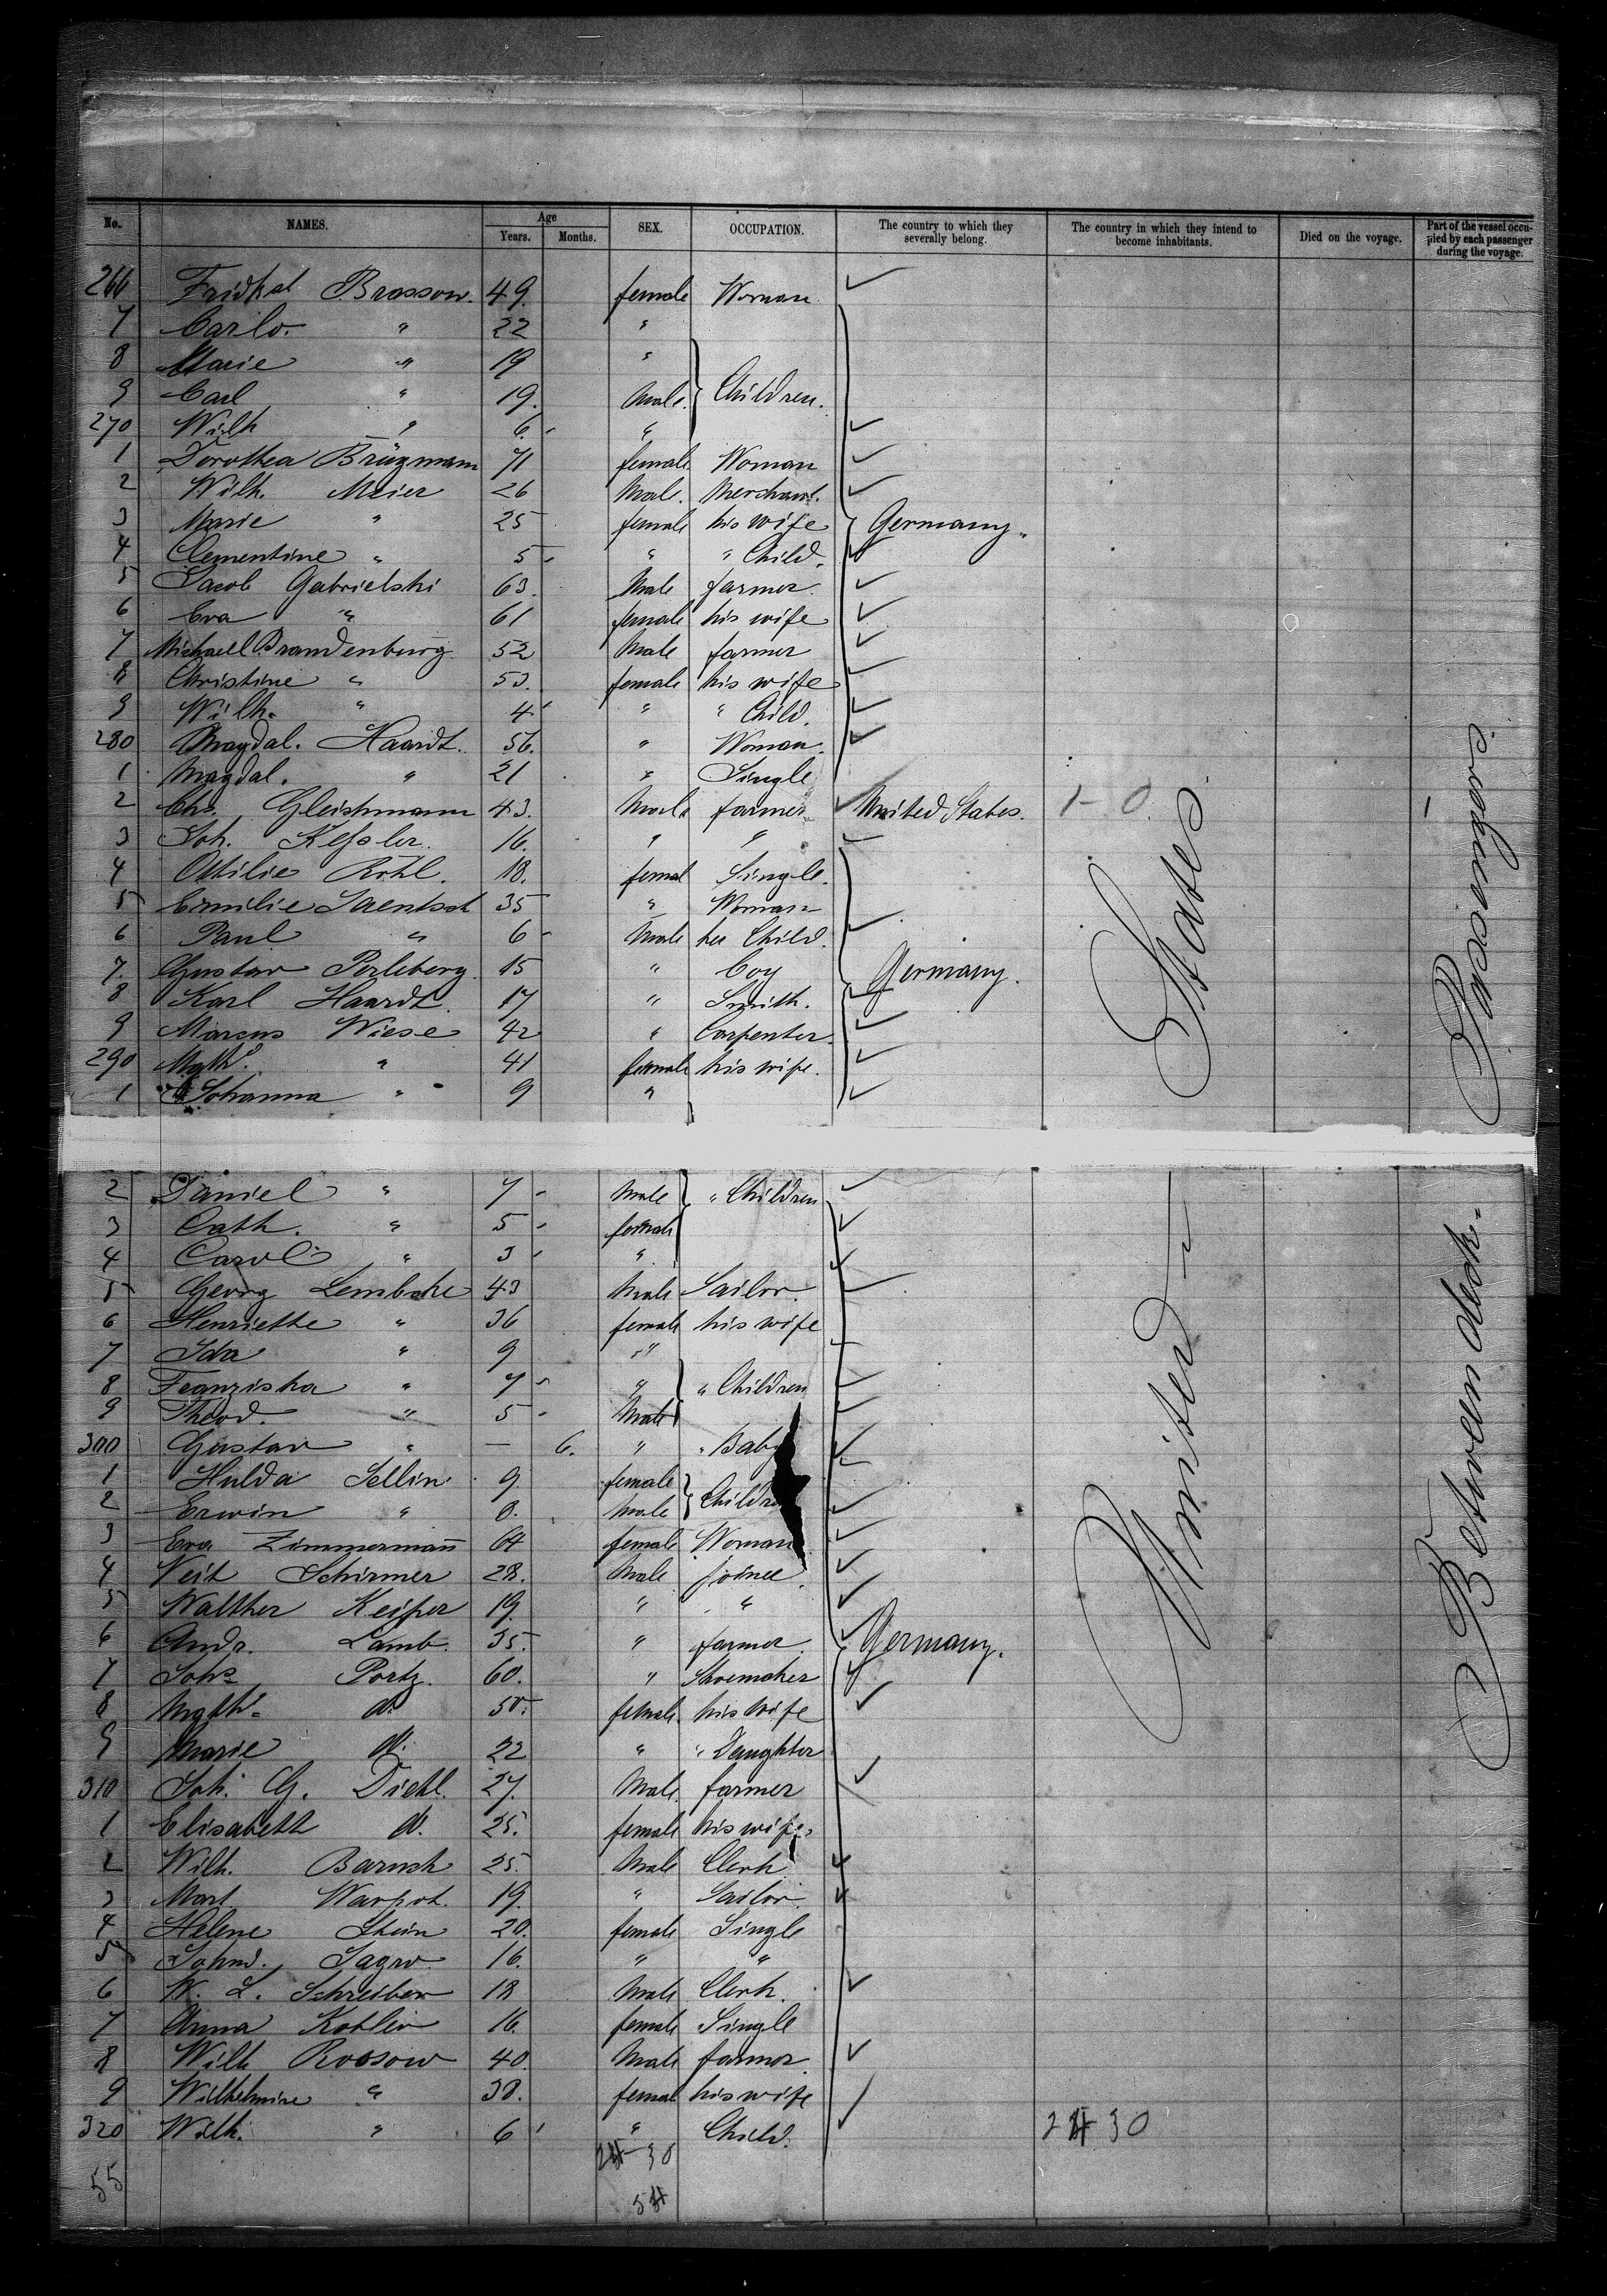 No. NAMES. Age Years. Months. SEX. OCCUPATION. The country to which they severally belong. The country in which they intend to become inhabitants. Died on the voyage. Part of the vessel occupied by each passenger during the voyage.
266 Brossow 49. female Woman
7 Carlo. " 22 "
8 Marie " 19 "
9 Carl " 19. Male. Children.
270 Wilh " 6. "
1 Dorothea Brügmann 71 female Woman
2 Wilh. Meier 26 Male. Merchant.
3 Marie " 25 female his wife Germany.
4 Clementine " 5 " " Child.
5 Jacob Gabrielski 63. Male farmer.
6 Eva " 61 female his wife
7 Michaell Brandenburg 52 Male farmer
8 Christine " 53. female his wife
9 Wilh. " 4 " " Child.
280 Magdal. Haardt. 56. " Woman.
1 Magdal. " 21 " Single
2 Chs. Gleishmann 43. Male farmer United States. 1-0 1
3 Joh. Kessler. 16. " "
4 Ottilie Röhl. 18. femal Single.
5 Emilie Jaentsch 35 " Woman
6 Paul " 6 Male her Child.
7. Gustav Perleberg. 15 " boy Germany.
8 Karl Haardt. 17 " Smith.
9 Marcus Wiese 42 " Carpenter.
290 Math. " 41 female his wife.
1 Johanna " 9 "
2 Daniel " 7 Male " Children
3 Cath. " 5 female
4 Carol. " 3 "
5 Georg Lembcke 43 Male Sailor.
6 Henriette " 36 female his wife
7 Ida " 9 "
8 Franziska " 7 " " Children
9 Theod. " 5 Male
300 Gustav " — 6. " " Baby
1 Hulda Sellin 9. female
2 Erwin " 8. Male Children
3 Eva Zimmermann 64 female Woman
4 Veit Schirmer 28. Male joiner.
5 Walther Keiper 19. " "
6 Andr. Lamb. 35. " farmer. Germany.
7 Johs Portz. 60. " Shoemaker
8 Math. d. 50. female. his wife
9 Marie d. 22 " " Daughter
310 Joh. G. Diehl. 27. Male. farmer
1 Elisabeth d. 25. female his wife.
2 Wilh. Barush 25. Male Clerk
3 Mart 19. " Sailor.
4 Helene Stein 20. female Single
5 16. " "
6 W. L. Schreiber 18 Male Clerk.
7 Anna Kohler 16. female Single
8 Wilh Rossow 40. Male farmer
9 Wilhelmine " 38. female his wife
320 Wilh. " 6 " Child.
30
30
55
54
United States
Between deck Passengers.